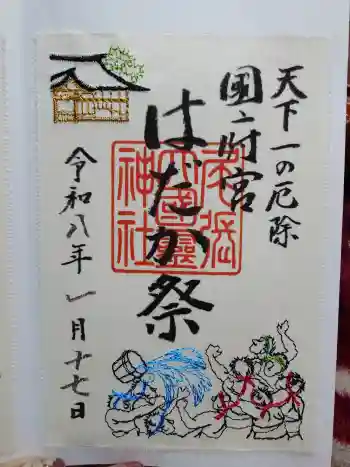 天下一の厄除
國府宮
はだか祭
尾張大國霊神社
令和八年一月十七日